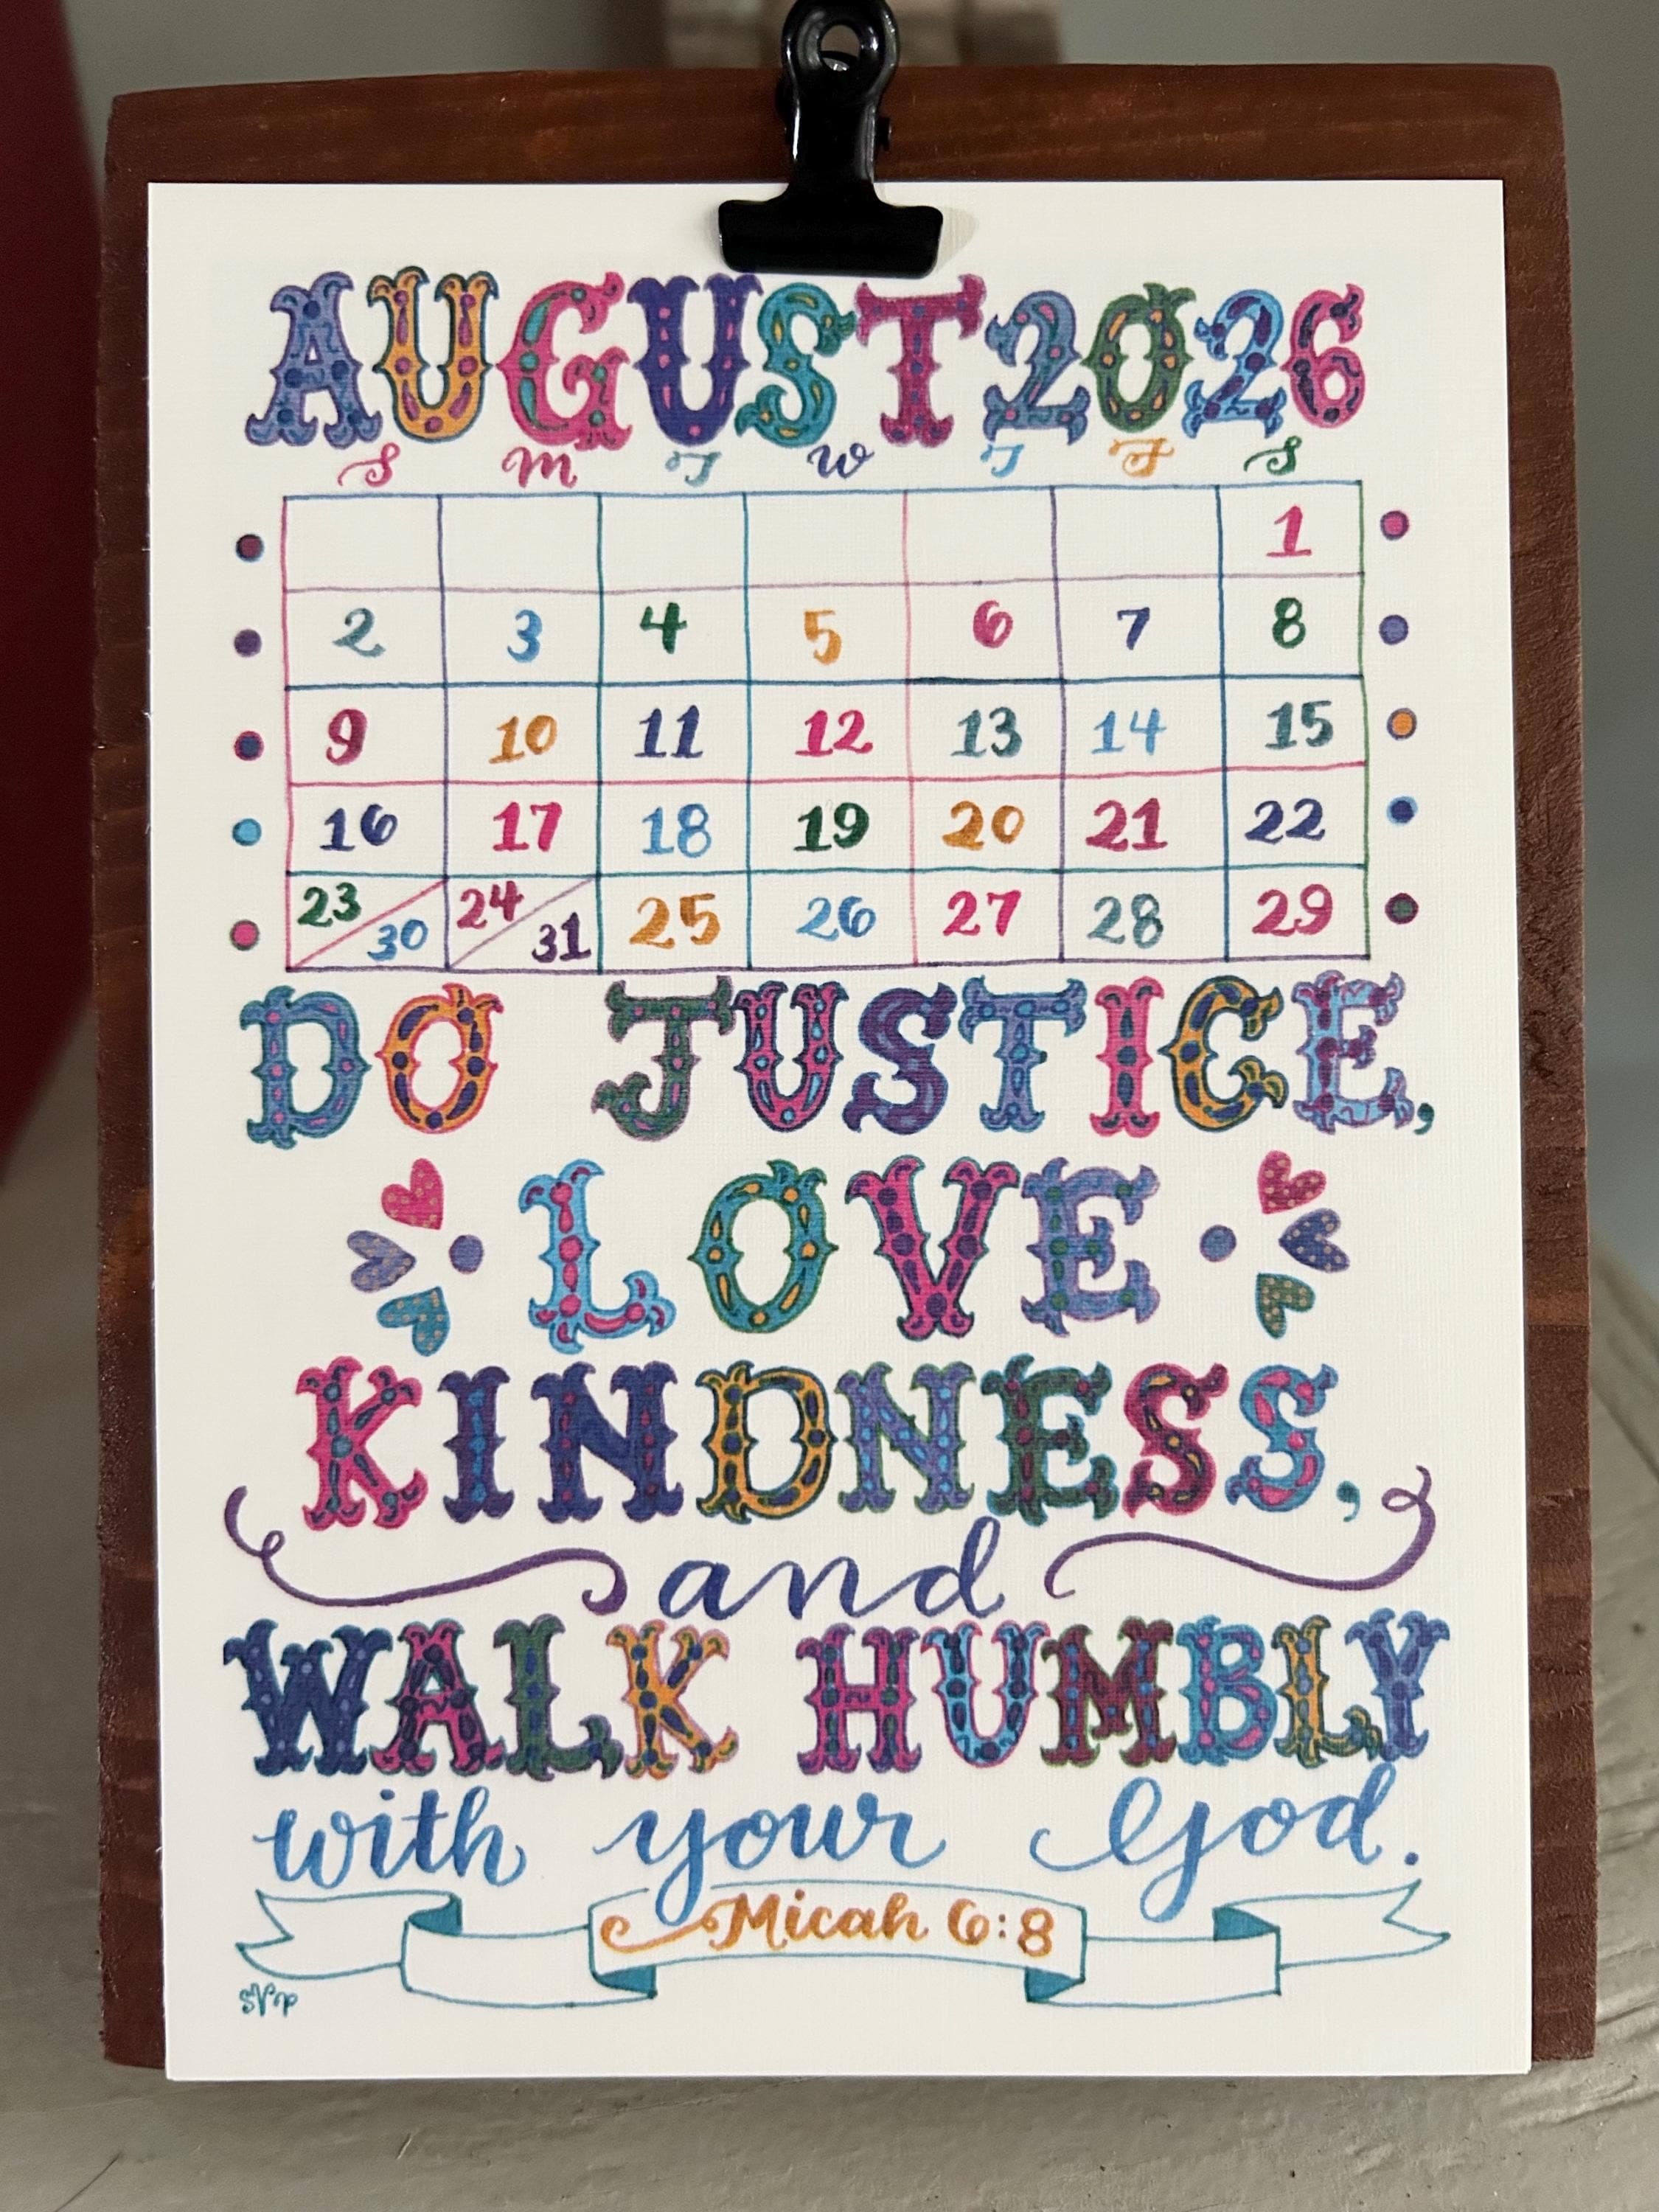 AUGUST 2026
S M T W T F S
1
2 3 4 5 6 7 8
9 10 11 12 13 14 15
16 17 18 19 20 21 22
23/30 24/31 25 26 27 28 29
DO JUSTICE,
LOVE
KINDNESS,
and
WALK HUMBLY
with your God.
Micah 6:8